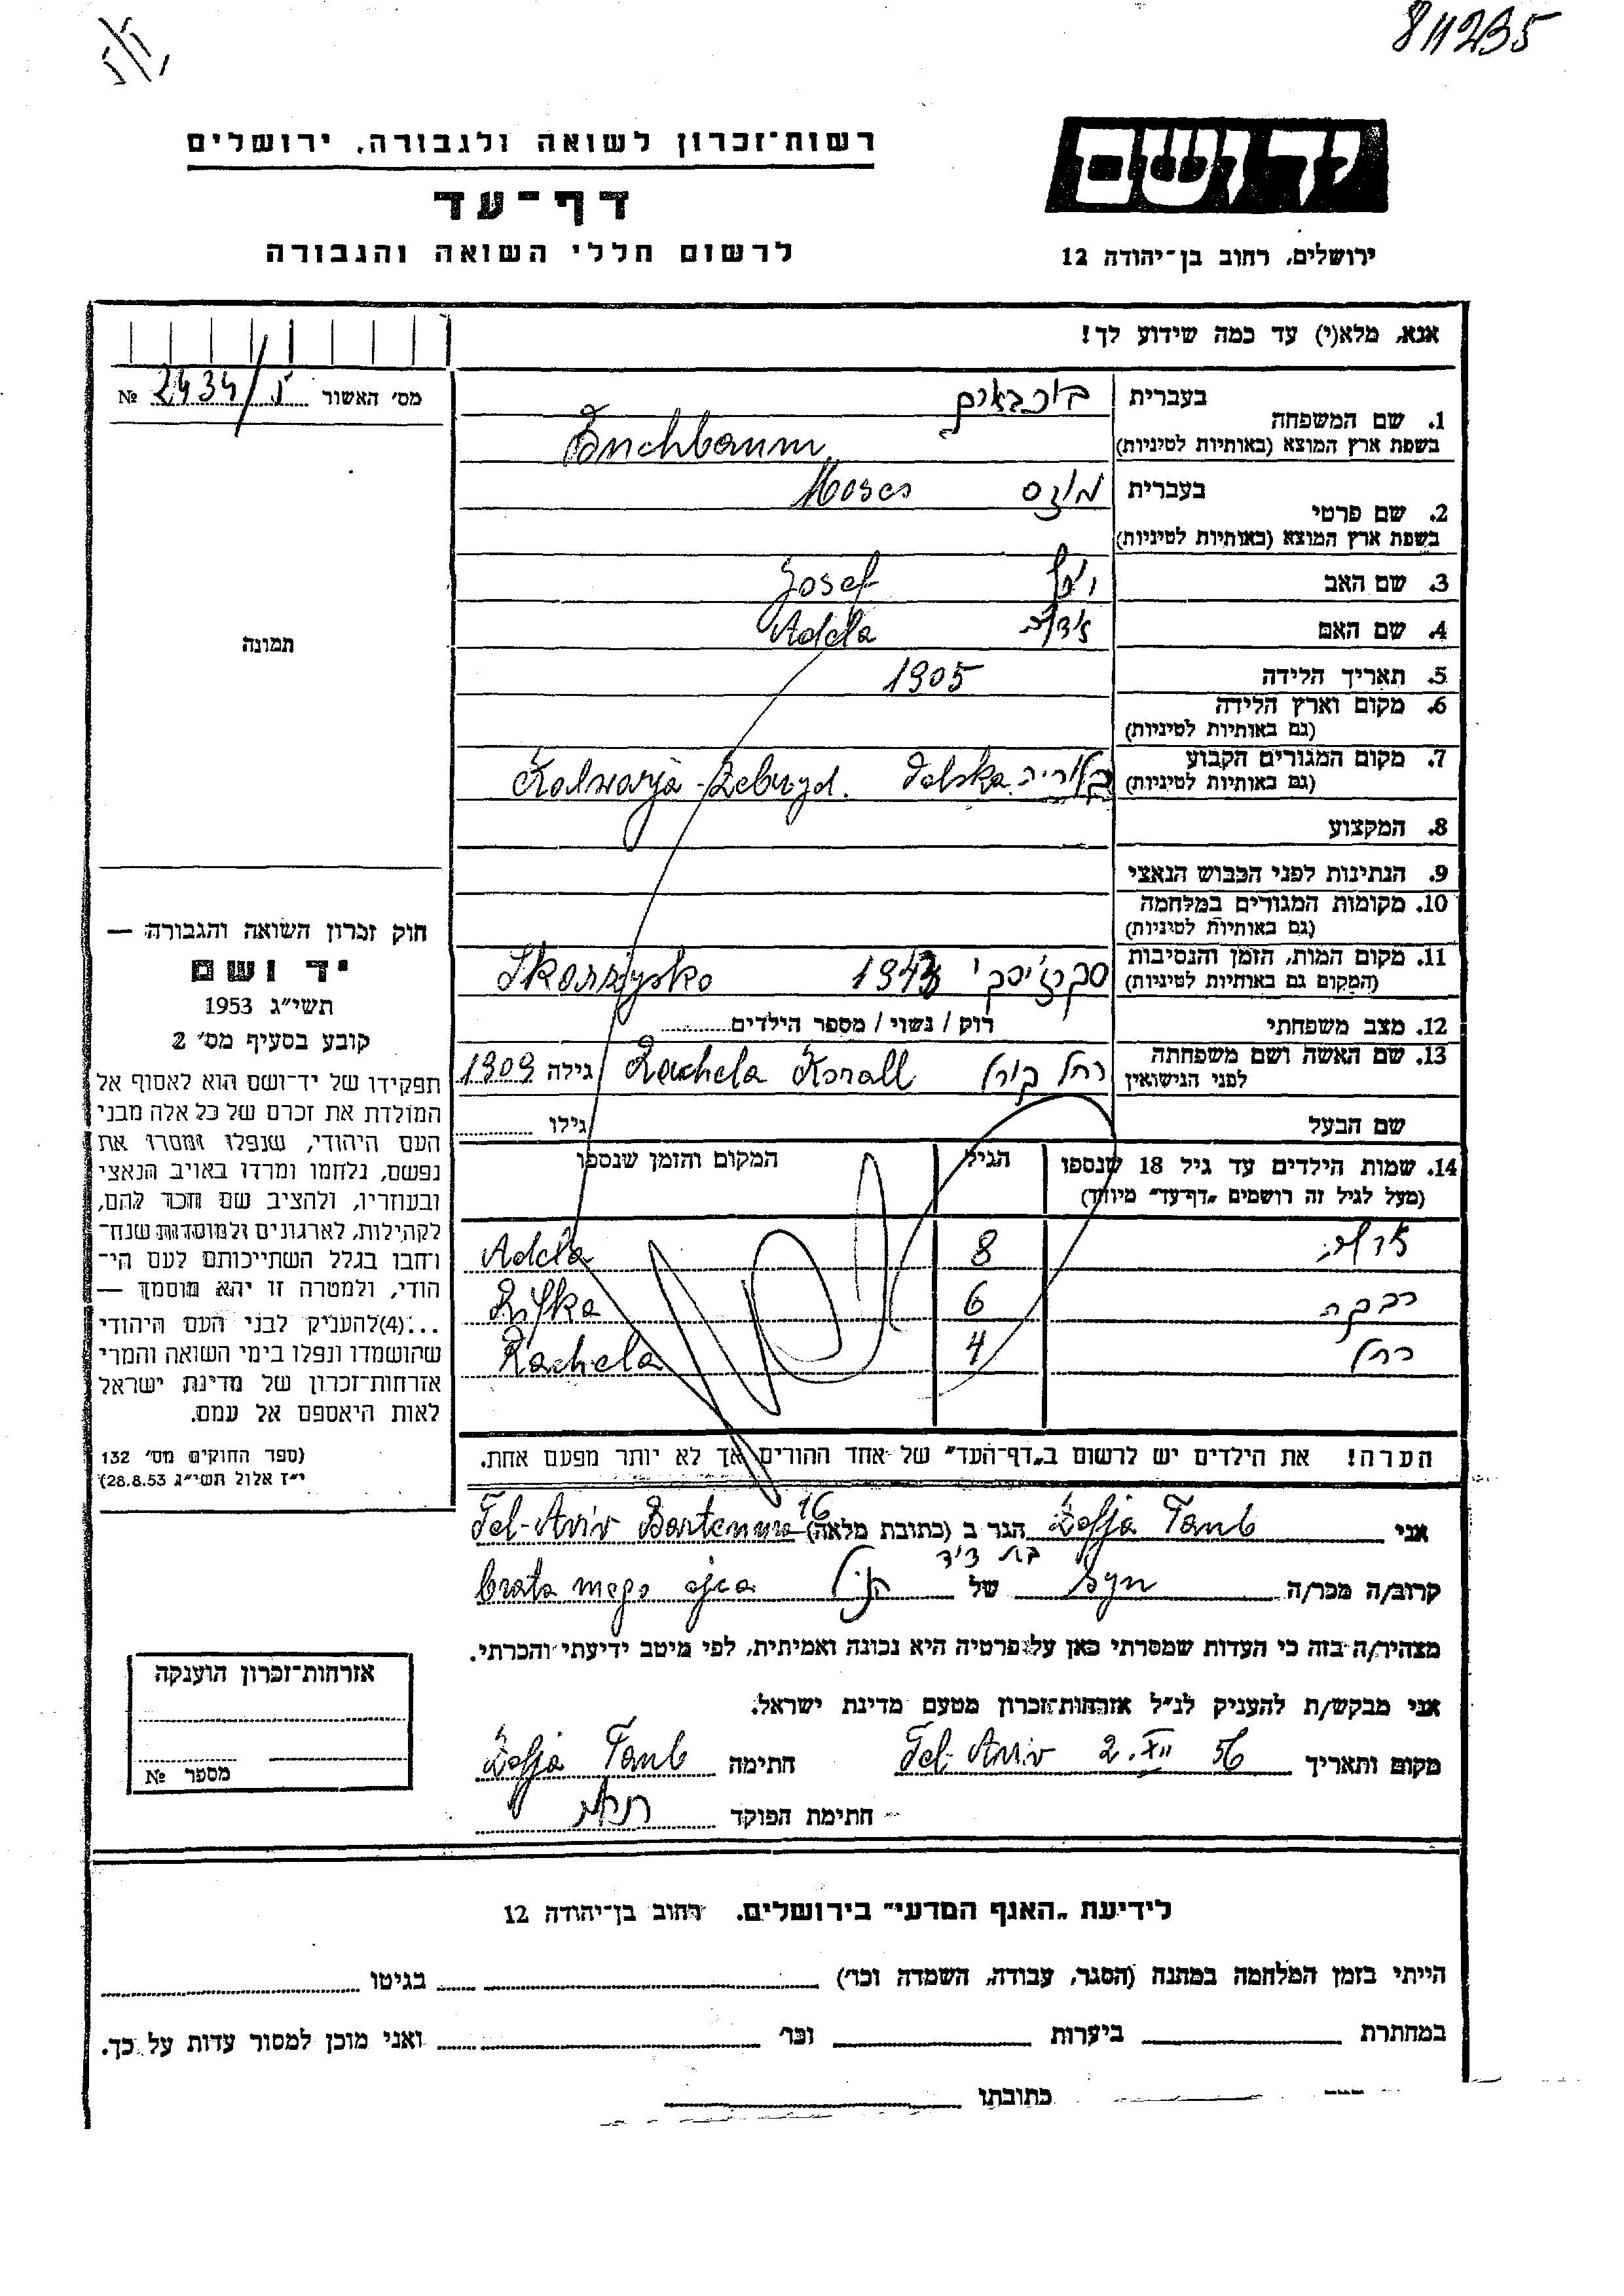 811235
רשות־זכרון לשואה ולגבורה, ירושלים
יד ושם
דף־עד
לרשום חללי השואה והגבורה
ירושלים, רחוב בן־יהודה 12
אנא, מלא(י) עד כמה שידוע לך!
מס׳ האשור № 2434/
בעברית בוכבאום
1. שם המשפחה
בשפת ארץ המוצא (באותיות לטיניות) Buchbaum
בעברית מוזס Moses
2. שם פרטי
בשפת ארץ המוצא (באותיות לטיניות)
3. שם האב יוסף Josef
4. שם האם אדלה Adela
5. תאריך הלידה 1905
6. מקום וארץ הלידה
(גם באותיות לטיניות)
7. מקום המגורים הקבוע
(גם באותיות לטיניות) Kalwarja-Zebrzyd. Polska
8. המקצוע
9. הנתינות לפני הכבוש הנאצי
10. מקומות המגורים במלחמה
(גם באותיות לטיניות)
11. מקום המות, הזמן והנסיבות
(המקום גם באותיות לטיניות) Skarżysko
12. מצב משפחתי רווק / נשוי / מספר הילדים
13. שם האשה ושם משפחתה
לפני הנישואין רחל קורל Rachela Korall גילה 1909
שם הבעל גילו
14. שמות הילדים עד גיל 18 שנספו הגיל המקום והזמן שנספו
(מעל לגיל זה רושמים „דף־עד” מיוחד)
אדלה 8 Adela
רבקה 6 Rifka
רחל 4 Rachela
הערה! את הילדים יש לרשום ב„דף־העד” של אחד ההורים אך לא יותר מפעם אחת.
תמונה
חוק זכרון השואה והגבורה —
יד ושם
תשי״ג 1953
קובע בסעיף מס׳ 2
תפקידו של יד־ושם הוא לאסוף אל
המולדת את זכרם של כל אלה מבני
העם היהודי, שנפלו ומסרו את
נפשם, נלחמו ומרדו באויב הנאצי
ובעוזריו, ולהציב שם וזכר להם,
לקהילות, לארגונים ולמוסדות שנח־
רחבו בגלל השתייכותם לעם הי־
הודי, ולמטרה זו יהא מוסמך —
...(4)להעניק לבני העם היהודי
שהושמדו ונפלו בימי השואה והמרי
אזרחות־זכרון של מדינת ישראל
לאות היאספם אל עמם.
(ספר החוקים מס׳ 132
י״ז אלול תשי״ג 28.8.53)
אני Zofja Taub הגר ב (כתובת מלאה) Tel-Aviv Bartenura 16
בת דוד
קרוב/ה מכר/ה syn של הנ״ל brata mego ojca
מצהיר/ה בזה כי העדות שמסרתי כאן על פרטיה היא נכונה ואמיתית, לפי מיטב ידיעתי והכרתי.
אני מבקש/ת להעניק לנ״ל אזרחות־זכרון מטעם מדינת ישראל.
מקום ותאריך Tel-Aviv 2.XII 56 חתימה Zofja Taub
חתימת הפוקד
אזרחות־זכרון הוענקה
מספר №
לידיעת „האגף המדעי” בירושלים. רחוב בן־יהודה 12
הייתי בזמן המלחמה במחנה (הסגר, עבודה, השמדה וכו׳) בגיטו
במחתרת ביערות וכו׳ ואני מוכן למסור עדות על כך.
כתובתו